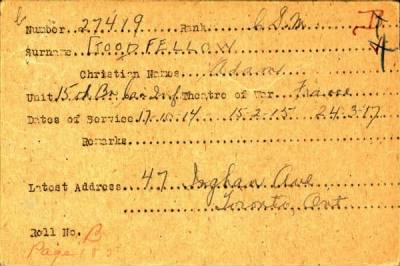 Number 27419 Rank C S M
Surname GOODFELLOW
Christian Names Adam
Unit 15th Bn. Can Inf Theatre of War France
Dates of Service 17-10-14 15-2-15 24-3-17
Remarks
Latest Address 47 Ingham Ave
Toronto, Ont
Roll No. B
Page 185